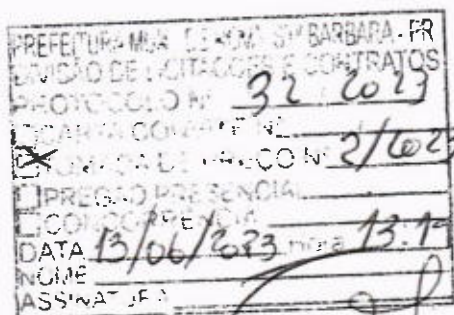 PREFEITURA MUN. DE NOVA Stª BARBARA - PR
DIVISÃO DE LICITAÇÕES E CONTRATOS
PROTOCOLO Nº 32 / 2023
CARTA CONVITE Nº
X TOMADA DE PREÇO Nº 2/2023
PREGÃO PRESENCIAL
CONCORRÊNCIA
DATA 13/06/2023 HORA
NOME
ASSINATURA